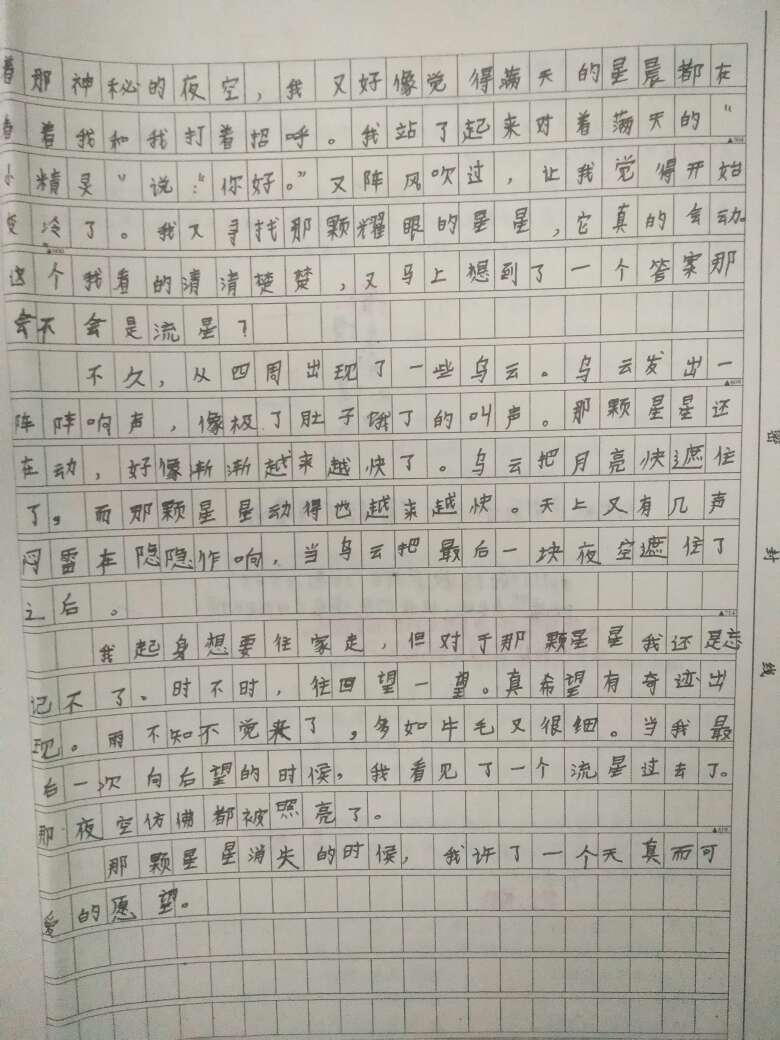 着那神秘的夜空，我又好像觉得满天的星晨都在
看着我和我打着招呼。我站了起来对着满天的“
小精灵”说：“你好。”又阵风吹过，让我觉得开始
变冷了。我又寻找那颗耀眼的星星，它真的会动。
这个我看的清清楚楚，又马上想到了一个答案那
会不会是流星？
不久，从四周出现了一些乌云。乌云发出一
阵阵响声，像极了肚子饿了的叫声。那颗星星还
在动，好像渐渐越来越快了。乌云把月亮快遮住
了，而那颗星星动得也越来越快。天上又有几声
闷雷在隐隐作响，当乌云把最后一块夜空遮住了
之后。
我起身想要往家走，但对于那颗星星我还是忘
记不了。时不时，往回望一望。真希望有奇迹出
现。雨不知不觉来了，多如牛毛又很细。当我最
后一次向后望的时候，我看见了一个流星过去了。
那夜空仿佛都被照亮了。
那颗星星消失的时候，我许了一个天真而可
爱的愿望。
密
封
线